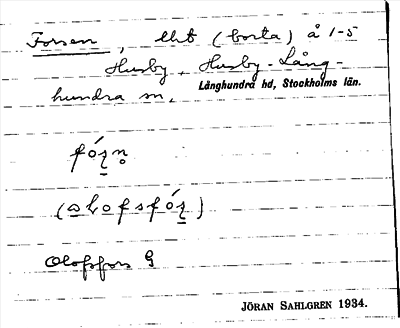 Forsen, lht (borta) å 1-5
Husby, Husby-Lång-
hundra sn,
Långhundra hd, Stockholms län.
fó̱ʐn̥
(o̱lofsfó̱ʐ)
Olofsfors G
JÖRAN SAHLGREN 1934.